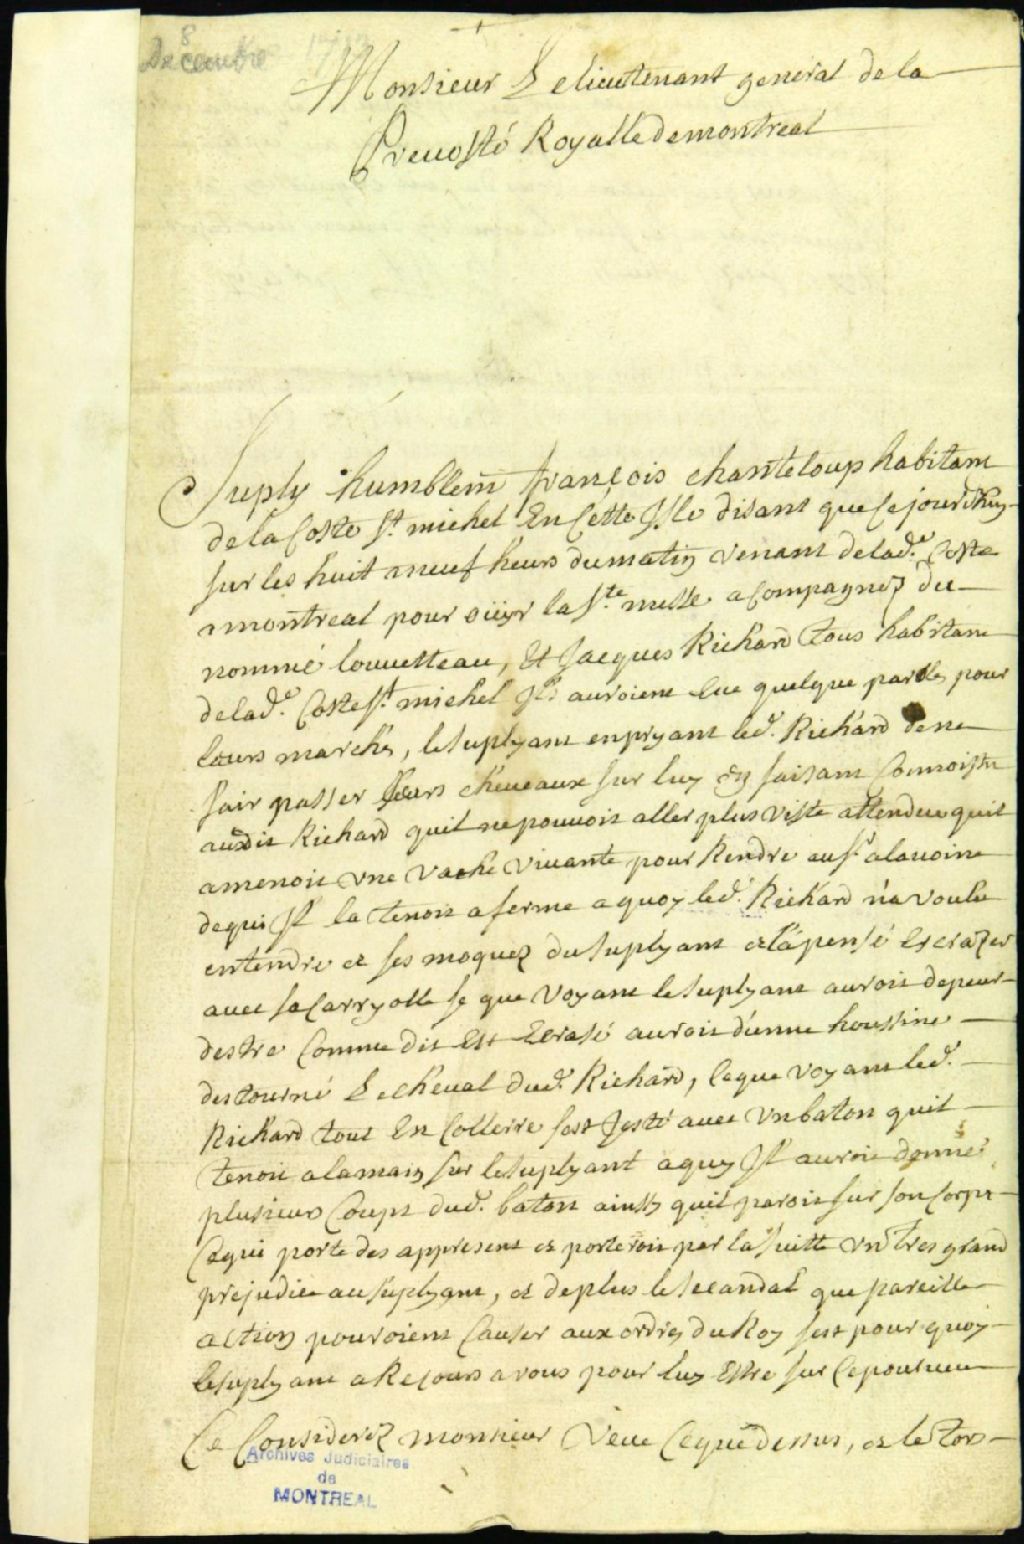 8
Decembre
Monsieur Le lieutenant general de la
Prevosté Royalle de montreal
Suply humblem françois chanteloup habitant
de la Coste St michel En Cette Isle disant que Ce jourdhuy
sur les huit neuf heurs du matin venant de lade Coste
a montreal pour oüyr la Ste messe acompagnez du
nommé louuetteau, Et Jacques Richard tous habitans
de lade Coste St michel Ils auroient Eue quelque parolle pour
leurs marché, le suplyant en pryant led. Richard de ne
fair passer ses cheueaux sur luy En faisant Connoistre
audit Richard quil ne pouuoit aller plus viste attendue quil
amenoit vne vache viuante pour Rendre au Sr alauoine
de qui Il la tenoit a ferme a quoy led. Richard n'a voulu
entendre et ses moquez du suplyant et la pensé Escrazer
auec sa Carryolle se que voyant le suplyant auroit de peur
destre Comme dit Est Ecrasé auroit d'une houssine
destourné Le cheual dud. Richard, Ce que voyant led.
Richard tout En Collerre sest Jesté auec vn baton quil
tenoit a la main sur le suplyant a quy Il auroit donné
plusieurs Coups dud. baton ainsy quil paroit sur son Corps
Ce qui porte des appresent et porteroit par la suitte vn tres grand
prejudice au suplyant, et de plus le scandal que pareille
action pouroient Causer aux ordres du Roy sest pour quoy
le suplyant a Recours a vous pour luy Estre sur Ce pourueue
Ce Considerez monsieur Veue Ce que dessus, et le tors
Archives Judiciaires
de
MONTREAL